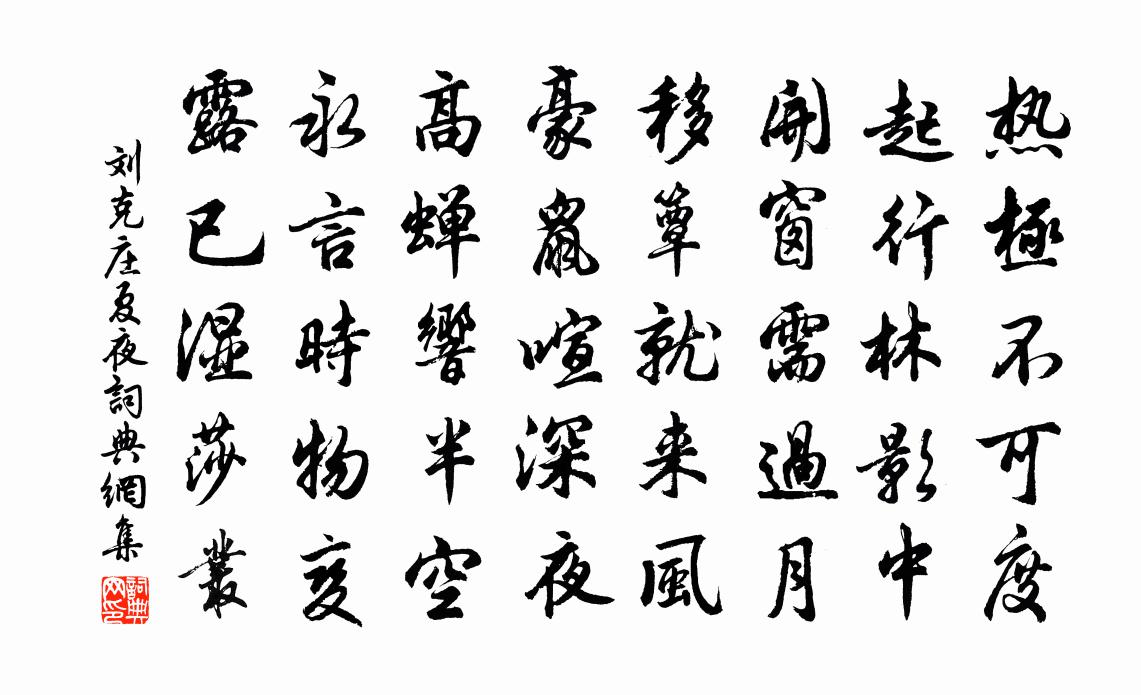 热極不可度
起行林影中
開窗需過月
移簟就来風
豪鼠喧深夜
高蝉響半空
永言時物变
露已湿莎叢
刘克庄夏夜詞典網集
詞典网印